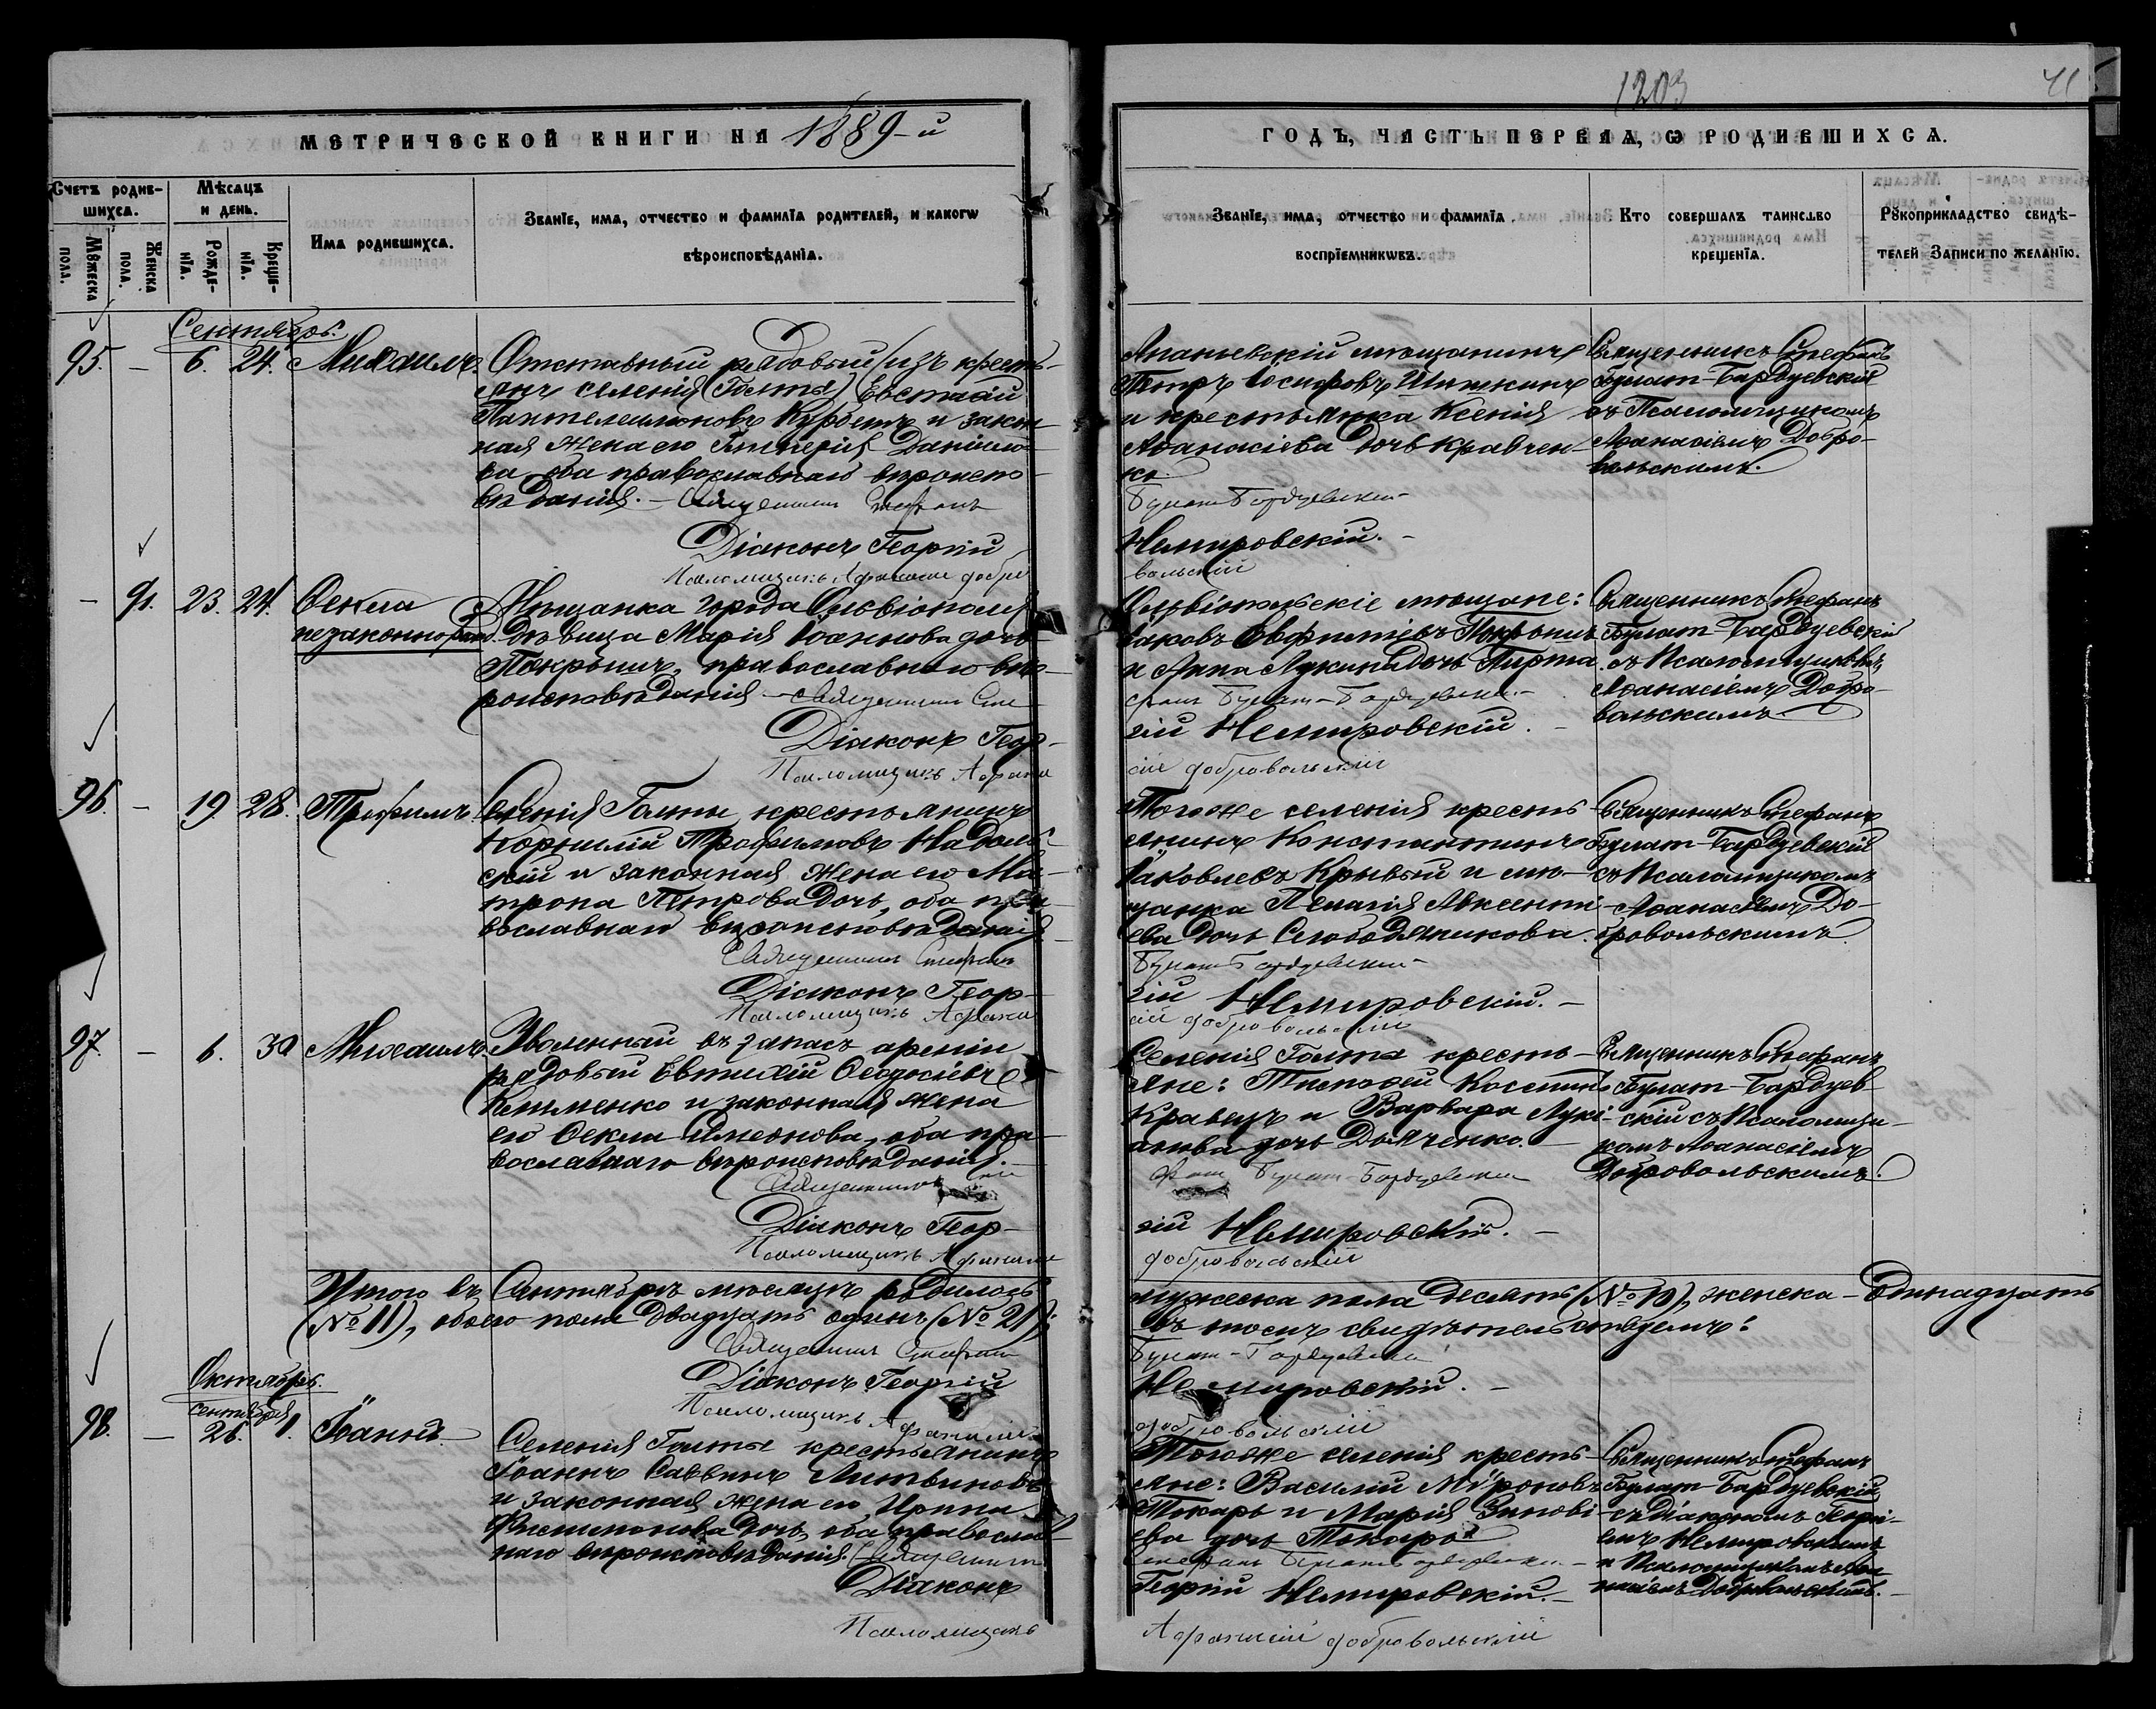 1203
41
МЕТРИЧЕСКОЙ КНИГИ НА 1889-й
ГОДЪ, ЧАСТЬ ПЕРВАѦ, Ѡ РОДИВШИХСѦ.
Счетъ родив-
шихсѧ.
Мѣсѧцъ
и день.
Мꙋжеска
пола.
Женска
пола.
Рожде-
нїѧ.
Креще-
нїѧ.
Имѧ родившихсѧ.
Званїе, имѧ, отчество и фамилїѧ родителей, и какогѡ
вѣроисповѣданїѧ.
Званїе, имѧ, отчество и фамилїѧ
воспрїемникѡвъ.
Кто совершалъ таинство
крещенїѧ.
Рꙋкоприкладство свидѣ-
телей Записи по желанїю.
Сентябрь.
95. — 6. 24. Михаилъ
Отставный рядовый (изъ кресть-
янъ селенія Голты) Евстафій
Пантелеимоновъ и закон-
ная жена его Гликерія Даніило-
ва, оба православнаго вѣроиспо-
вѣданія. — Священникъ Стефанъ
Діаконъ Георгій
Псаломщикъ Афанасій Добро
Ананьевскій мѣщанинъ
Петръ Іосифовъ Шишкинъ
и крестьянка Ксенія
Аѳанасіева дочь Кравчен-
ко.
Булат-Бардуевскій
Немировскій. —
вольскій
Священникъ Стефанъ
Булат-Бардуевскій
съ Псаломщикомъ
Аѳанасіемъ Добро-
вольскимъ.
— 91. 23. 24. Ѳекла
незаконнорожд.
Мѣщанка города Ольвіополя
дѣвица Марія Іоаннова дочь
православнаго вѣ-
роисповѣданія — Священникъ Сте
Діаконъ Геор-
Псаломщикъ Афана
Ольвіопольскіе мѣщане:
Іаковъ Евфиміевъ
и Анна Лукина дочь Пирта.
фанъ Булат-Бардуевскій —
гій Немировскій. —
сій Добровольскій
Священникъ Стефанъ
Булат-Бардуевскій
съ Псаломщикомъ
Аѳанасіемъ Добро-
вольскимъ.
96. — 19. 28. Трофимъ
Селенія Голты крестьянинъ
Корнилій Трофимовъ Надоль-
скій и законная жена его Ма-
трона Петрова дочь, оба пра-
вославнаго вѣроисповѣданія
Священникъ Стефанъ
Діаконъ Геор-
Псаломщикъ Афана
Того же селенія кресть-
янинъ Константинъ
Іаковлевъ Крывый и мѣ-
щанка Пелагія Авксенті-
ева дочь Слободяникова.
Булат-Бардуевскій —
гій Немировскій. —
сій Добровольскій
Священникъ Стефанъ
Булат-Бардуевскій
съ Псаломщикомъ
Аѳанасіемъ До-
бровольскимъ.
97. — 6. 30 Михаилъ
Уволенный въ запасъ арміи
рядовый Евтихій Ѳеодосіевъ
Клименко и законная жена
его Ѳекла Симеонова, оба пра-
вославнаго вѣроисповѣданія.
Священникъ Сте
Діаконъ Геор-
Псаломщикъ Афанасій
Селенія Голты кресть-
яне: Тимофей Косминъ
Кравецъ и Варвара Лукі-
анова дочь Дьяченко. —
фанъ Булат-Бардуевскій
гій Немировскій. —
Добровольскій
Священникъ Стефанъ
Булат-Бардуев-
скій съ Псаломщи-
комъ Аѳанасіемъ
Добровольскимъ.
Итого въ Сентябрѣ мѣсяцѣ родилось
мужеска пола десять (№ 10), женска — одинадцать
(№ 11), обоего пола двадцать одинъ (№ 21);
въ томъ свидѣтельствуемъ:
Священникъ Стефанъ
Булат-Бардуевскій
Діаконъ Георгій
Немировскій. —
Псаломщикъ Афанасій
Добровольскій
Октябрь.
сентября
98. — 26. 1. Іоаннъ
Селенія Голты крестьянинъ
Іоаннъ Саввинъ Литвиновъ
и законная жена его Ирина
Филимонова дочь, оба православ-
наго вѣроисповѣданія. Священникъ
Діаконъ
Псаломщикъ
Того же селенія кресть-
яне: Василій Мѵроновъ
Токарь и Марія Зинові-
ева дочь Токарь
Стефанъ Булат-Бардуевскій —
Георгій Немировскій. —
Афанасій Добровольскій
Священникъ Стефанъ
Булат-Бардуевскій
съ Діакономъ Георгі-
емъ Немировскимъ
и Псаломщикомъ Аѳа-
насіемъ Добровольскимъ. —